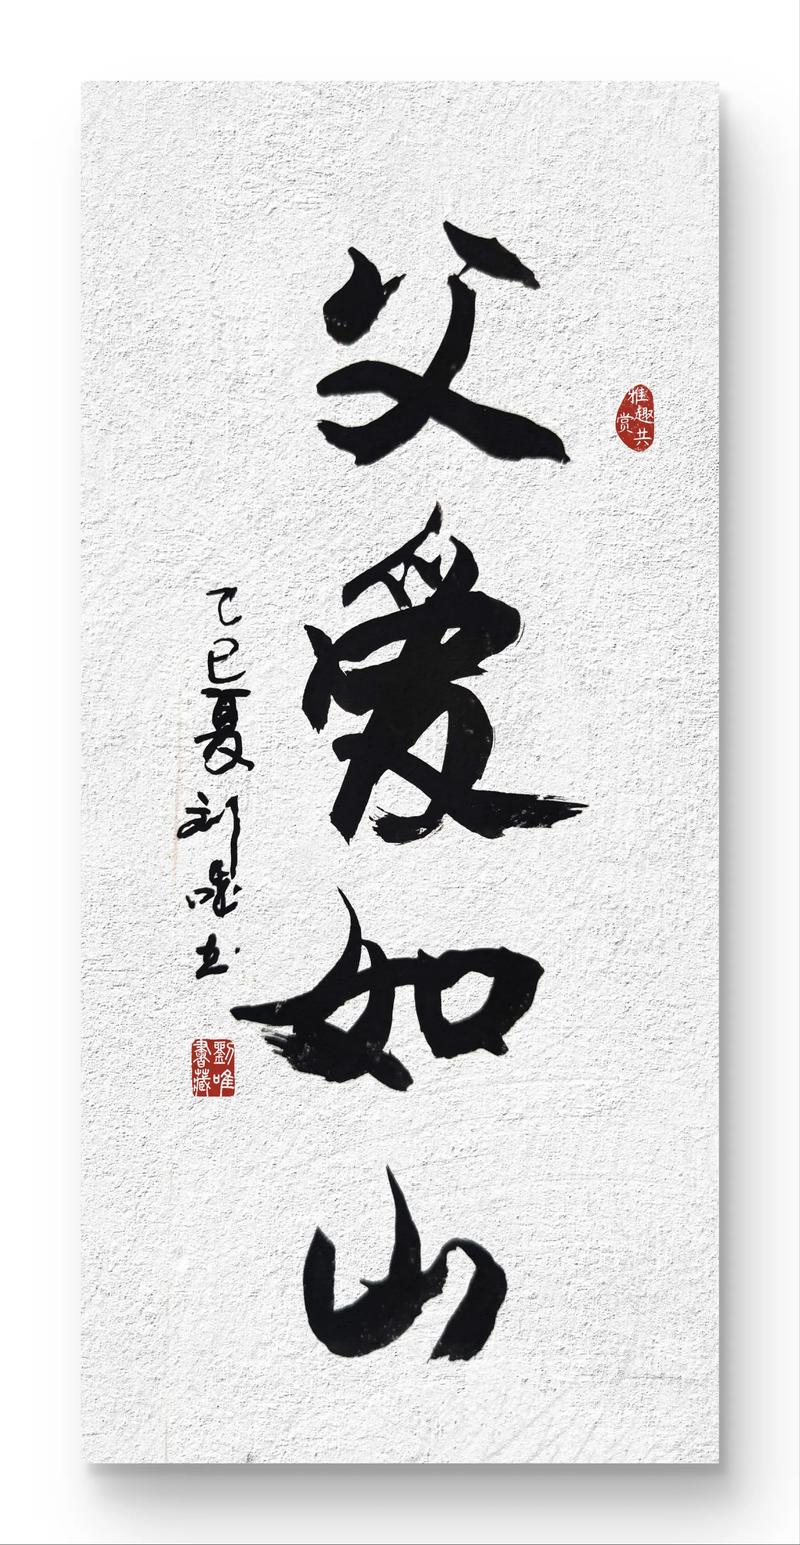 父爱如山
雅趣共赏
乙巳夏刘唯书
劉唯書藏